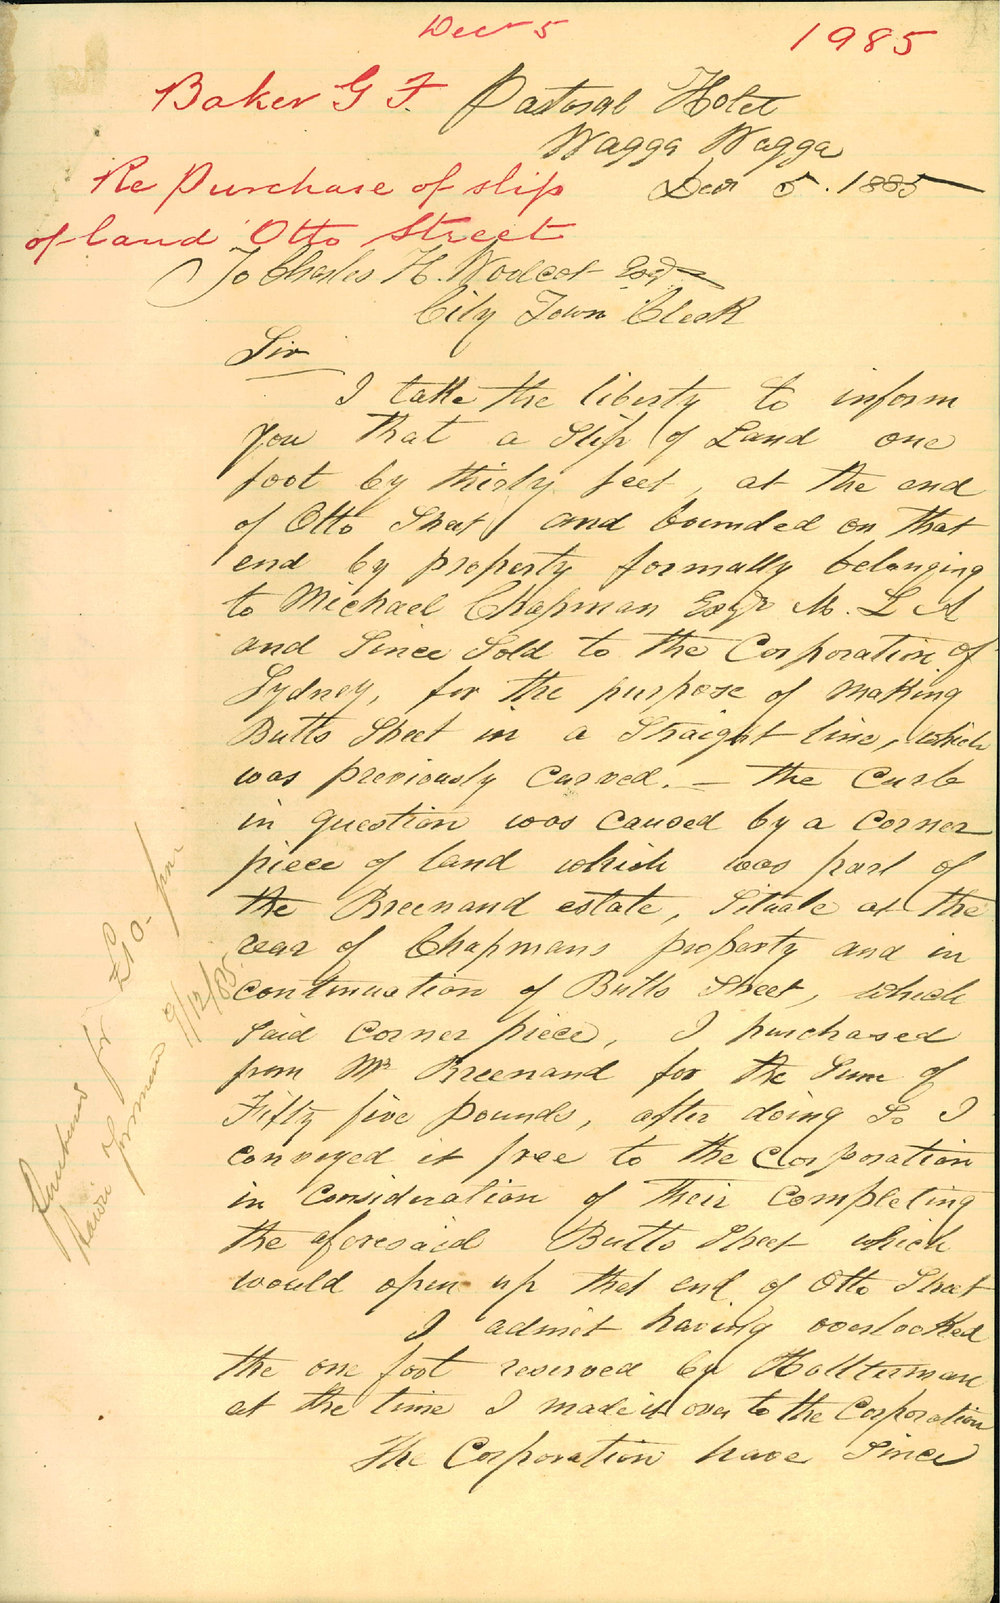 Decr 5
1985
Baker G F.
Pastoral Hotel
Wagga Wagga
Re Purchase of slip
of land Otto Street
Decr 5. 1885
To Charles H. Woolcot Esqr
City Town Clerk
Sir
I take the liberty to inform
you that a Slip of Land one
foot by thirty feet, at the end
of Otto Street, and bounded on that
end by property formally belonging
to Michael Chapman Esqr M. L A
and Since Sold to the Corporation of
Sydney, for the purpose of making
Butts Street in a Straight line, which
was previously curved. – the Curb
in question was caused by a Corner
piece of land which was part of
the Breenand estate, Situate at the
rear of Chapmans property and in
continuation of Butts Street, which
Said Corner piece, I purchased
from Mr Breenand for the Sum of
Fifty five pounds, after doing So I
conveyed it free to the Corporation
in consideration of their completing
the aforesaid Butts Street which
would open up that end of Otto Street
I admit having overlooked
the one foot reserved by Holtterman
at the time I made it over to the Corporation
The Corporation have Since
Purchase for £10-
9/12/85